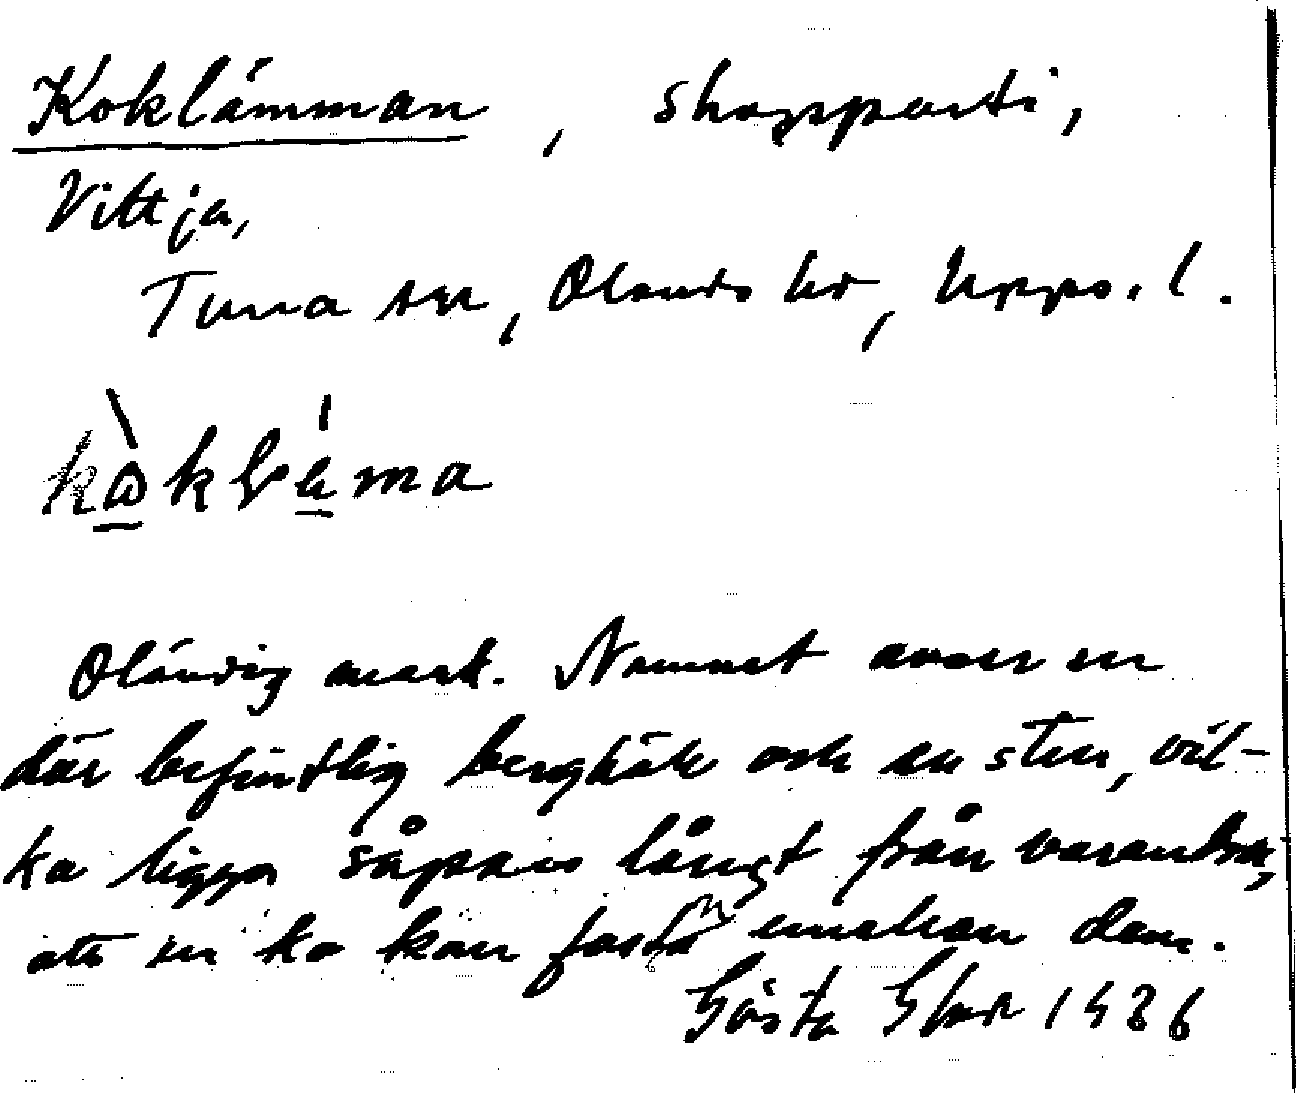 Koklämman, skogsparti,
Vittja,
Tuna sn, Olands hd, Upps. l.
Oländig mark. Namnet avser en
där befintlig berghäll och en sten, vil-
ka ligga såpass långt från varandra,
att en ko kan fastna emellan dem.
Gösta 1936